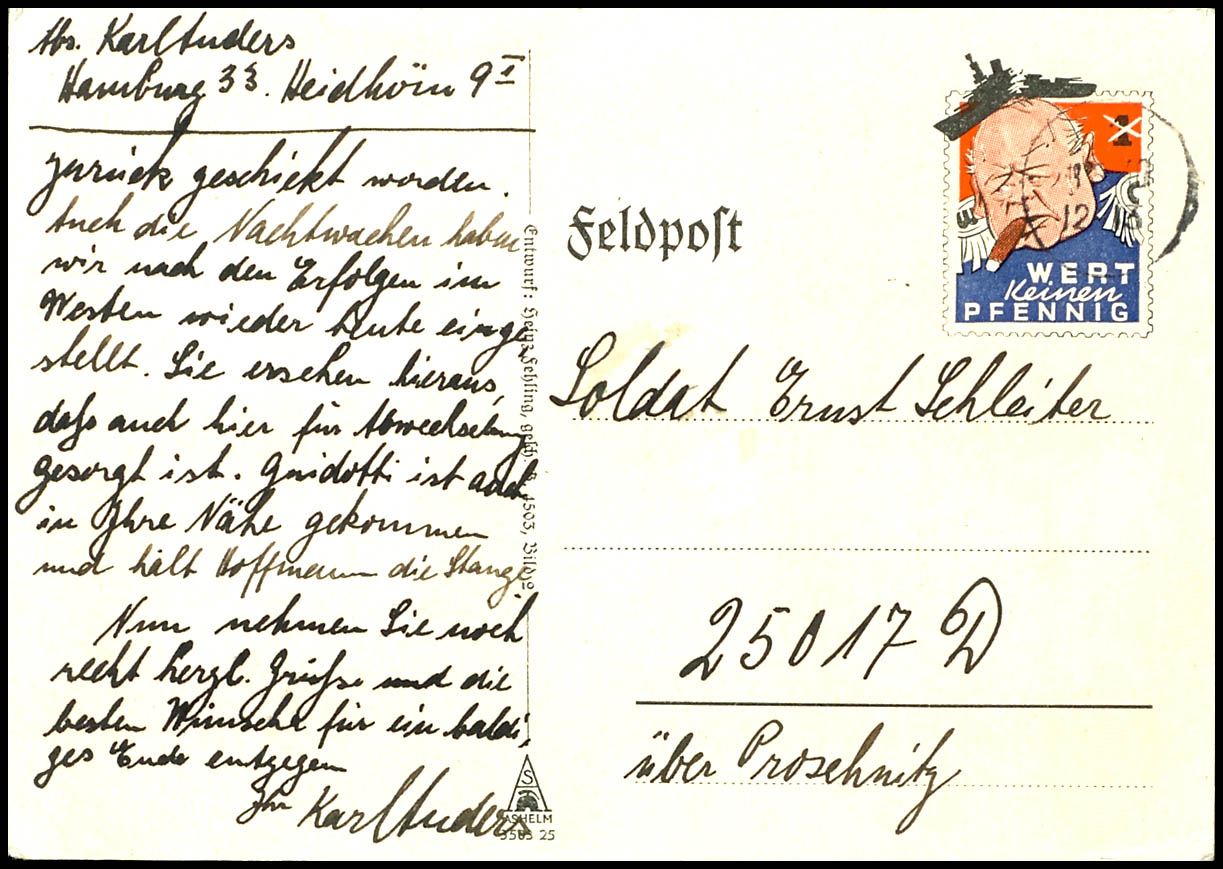 Abs. Karl Anders
Hamburg 33. Heidhörn 9 I
zurück geschickt worden.
Auch die Nachtwachen haben
wir nach den Erfolgen im
Westen wieder heute einge
stellt. Sie ersehen hieraus,
daß auch hier für Abwechselung
gesorgt ist. Guidotti ist auch
in Ihre Nähe gekommen
und hält Hoffmann die Stange.
Nun nehmen Sie noch
recht herzl. Grüße und die
besten Wünsche für ein baldi,
ges Ende entgegen
Ihr Karl Anders
Entwurf: Heinz Fehling, gesch. 4503, Bild
ASHELM
3503 25
Feldpost
1
WERT
keinen
PFENNIG
12
Soldat Ernst Schleiter
25017 D
über Proschnitz